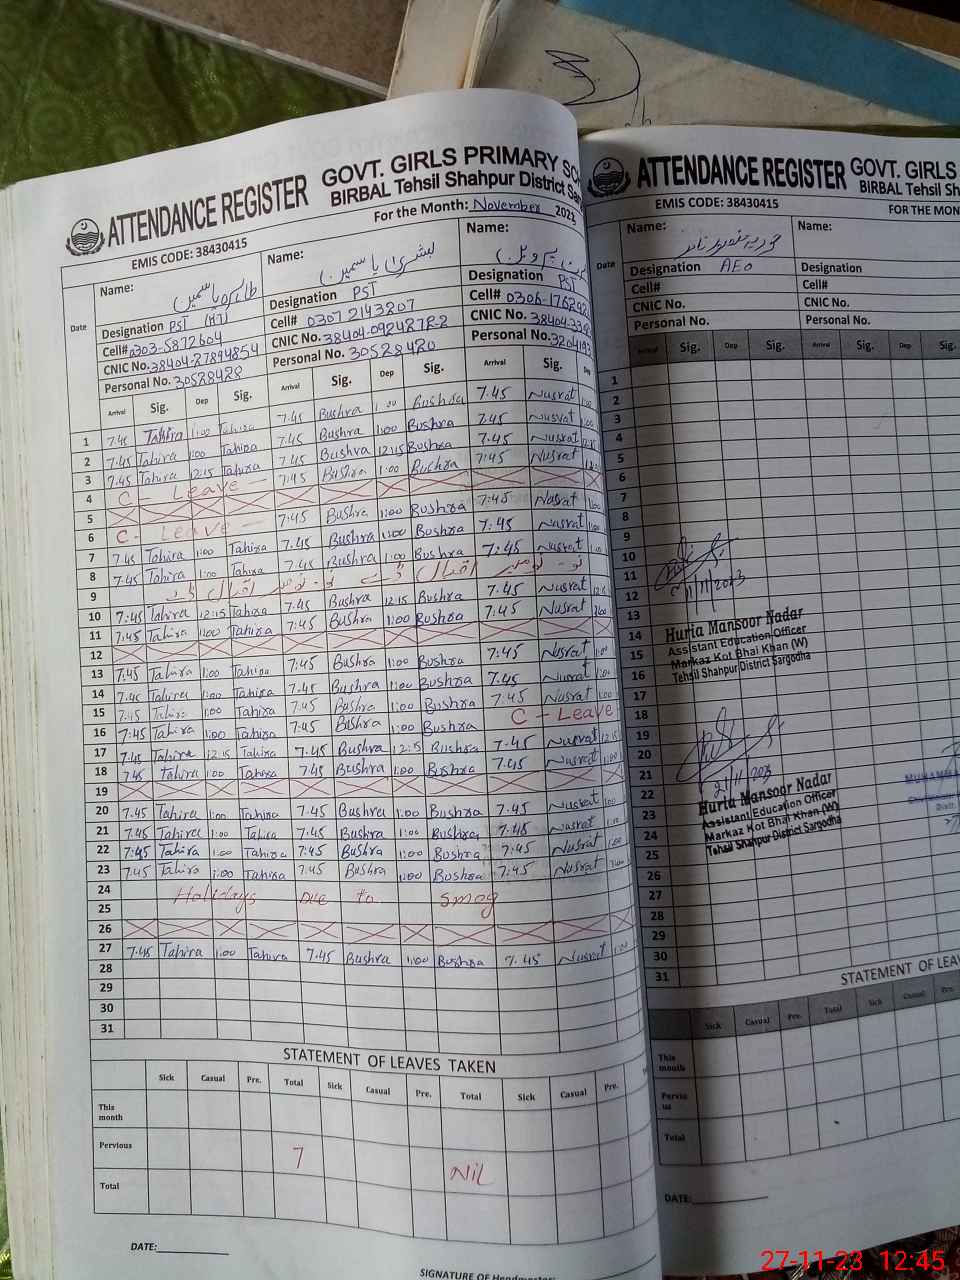 ATTENDANCE REGISTER GOVT. GIRLS PRIMARY
BIRBAL Tehsil Shahpur District
EMIS CODE: 38430415 For the Month: November 2023
Date
Name: طاہرہ یاسمین
Designation PST (HT)
Cell# 0303-5872604
CNIC No. 38404-27894854
Personal No. 30528428
Name: بشریٰ یاسمین
Designation PST
Cell# 0307 2143207
CNIC No. 38404-0924878-2
Personal No. 30528420
Name: پروین
Designation PST
Cell# 0306-176292
CNIC No.
Personal No.
Arrival Sig. Dep Sig. Arrival Sig. Dep Sig. Arrival Sig. Dep
1 7:45 Tahira 1:00 Tahira 7:45 Bushra 1:00 Bushra 7:45 Nusrat 1:00
2 7:45 Tahira 1:00 Tahira 7:45 Bushra 1:00 Bushra 7:45 Nusrat 1:00
3 7:45 Tahira 12:15 Tahira 7:45 Bushra 12:15 Bushra 7:45 Nusrat
4 C - Leave - 7:45 Bushra 1:00 Bushra 7:45 Nusrat
5
6 C - Leave - 7:45 Bushra 1:00 Bushra 7:45 Nusrat 1:00
7 7:45 Tahira 1:00 Tahira 7:45 Bushra 1:00 Bushra 7:45 Nusrat 1:00
8 7:45 Tahira 1:00 Tahira 7:45 Bushra 1:00 Bushra 7:45 Nusrat 1:00
9 نومبر اقبال ڈے نومبر اقبال ڈے
10 7:45 Tahira 12:15 Tahira 7:45 Bushra 12:15 Bushra 7:45 Nusrat
11 7:45 Tahira 1:00 Tahira 7:45 Bushra 1:00 Bushra 7:45 Nusrat
12
13 7:45 Tahira 1:00 Tahira 7:45 Bushra 1:00 Bushra 7:45 Nusrat 1:00
14 7:45 Tahira 1:00 Tahira 7:45 Bushra 1:00 Bushra 7:45 Nusrat 1:00
15 7:45 Tahira 1:00 Tahira 7:45 Bushra 1:00 Bushra 7:45 Nusrat 1:00
16 7:45 Tahira 1:00 Tahira 7:45 Bushra 1:00 Bushra C - Leave
17 7:45 Tahira 12:15 Tahira 7:45 Bushra 12:15 Bushra 7:45 Nusrat 12:15
18 7:45 Tahira 1:00 Tahira 7:45 Bushra 1:00 Bushra 7:45 Nusrat 1:00
19
20 7:45 Tahira 1:00 Tahira 7:45 Bushra 1:00 Bushra 7:45 Nusrat 1:00
21 7:45 Tahira 1:00 Tahira 7:45 Bushra 1:00 Bushra 7:45 Nusrat 1:00
22 7:45 Tahira 1:00 Tahira 7:45 Bushra 1:00 Bushra 7:45 Nusrat 1:00
23 7:45 Tahira 1:00 Tahira 7:45 Bushra 1:00 Bushra 7:45 Nusrat 1:00
24 Holidays Due to Smog
25
26
27 7:45 Tahira 1:00 Tahira 7:45 Bushra 1:00 Bushra 7:45 Nusrat 1:00
28
29
30
31
STATEMENT OF LEAVES TAKEN
Sick Casual Pre. Total Sick Casual Pre. Total Sick Casual Pre.
This month
Pervious 7 Nil
Total
DATE:
SIGNATURE OF
ATTENDANCE REGISTER GOVT. GIRLS
BIRBAL Tehsil
EMIS CODE: 38430415 FOR THE
Date
Name:
Designation AEO
Cell#
CNIC No.
Personal No.
Name:
Designation
Cell#
CNIC No.
Personal No.
Arrival Sig. Dep Sig. Arrival Sig. Dep Sig.
1
2
3
4
5
6
7
8
9
10
11
12
13
14
15
16
17
18
19
20
21
22
23
24
25
26
27
28
29
30
31
Huria Mansoor Nadar
Assistant Education Officer
Markaz Kot Bhai Khan (W)
Tehsil Shahpur District Sargodha
Huria Mansoor Nadar
Assistant Education Officer
Markaz Kot Bhai Khan (W)
Tehsil Shahpur District Sargodha
STATEMENT OF
Sick Casual Pre. Total Sick Casual Pre.
This month
Pervio us
Total
DATE:
27-11-23 12:45